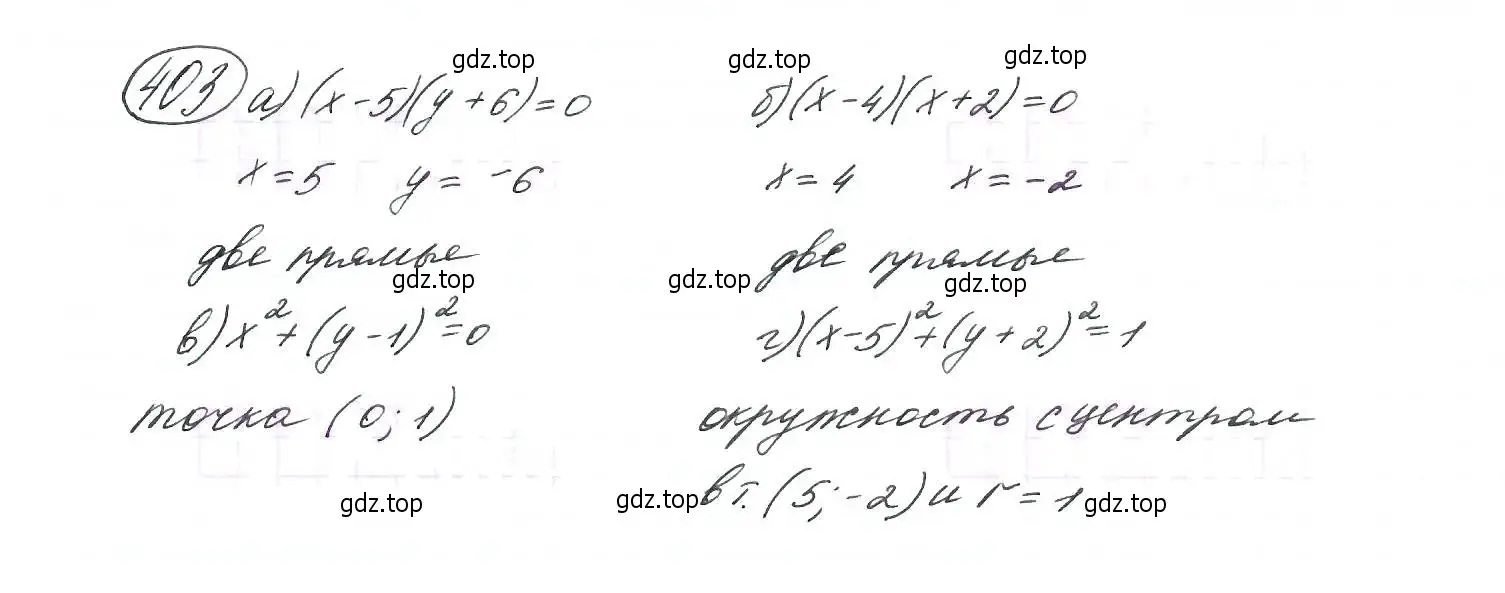 403 а) (x-5)(y+6)=0 б) (x-4)(x+2)=0
x=5 y=-6 x=4 x=-2
две прямые две прямые
в) x²+(y-1)²=0 г) (x-5)²+(y+2)²=1
точка (0;1) окружность с центром
в т. (5;-2) и r=1
gdz.top gdz.top gdz.top
gdz.top gdz.top gdz.top
gdz.top gdz.top gdz.top